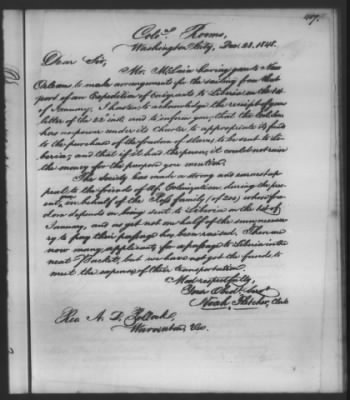 Colo. Rooms,
Washington City, Dec. 23, 1848.
Dear Sir,
Mr. McLain having gone to New
Orleans to make arrangements for the sailing from that
port of an Expedition of emigrants to Liberia on the 1st
of January, I hasten to acknowledge the receipt of your
letter of the 22d inst. and to inform you, that the Coln Soc
has no power under its Charter to appropriate its funds
to the purchase of the freedom of slaves, to be sent to Li-
beria; and that if it had the power, it could not raise
the money for the purpose you mention.
The Society has made a strong and earnest ap-
peal to the friends of Af. Colonization during the pre-
sent year, on behalf of the Ross family (of 200) whose free-
dom depends on being sent to Liberia on the 1st of
January, and as yet not one half of the sum necessa-
ry to pay their passage has been raised. There are
now many applicants for a passage to Liberia in the
next Packet, but we have not got the funds to
meet the expenses of their transportation.
Most respectfully,
Your Obedt Servt
Noah Fletcher, Clerk
Rev A. D. Pollock,
Warrenton, Va.